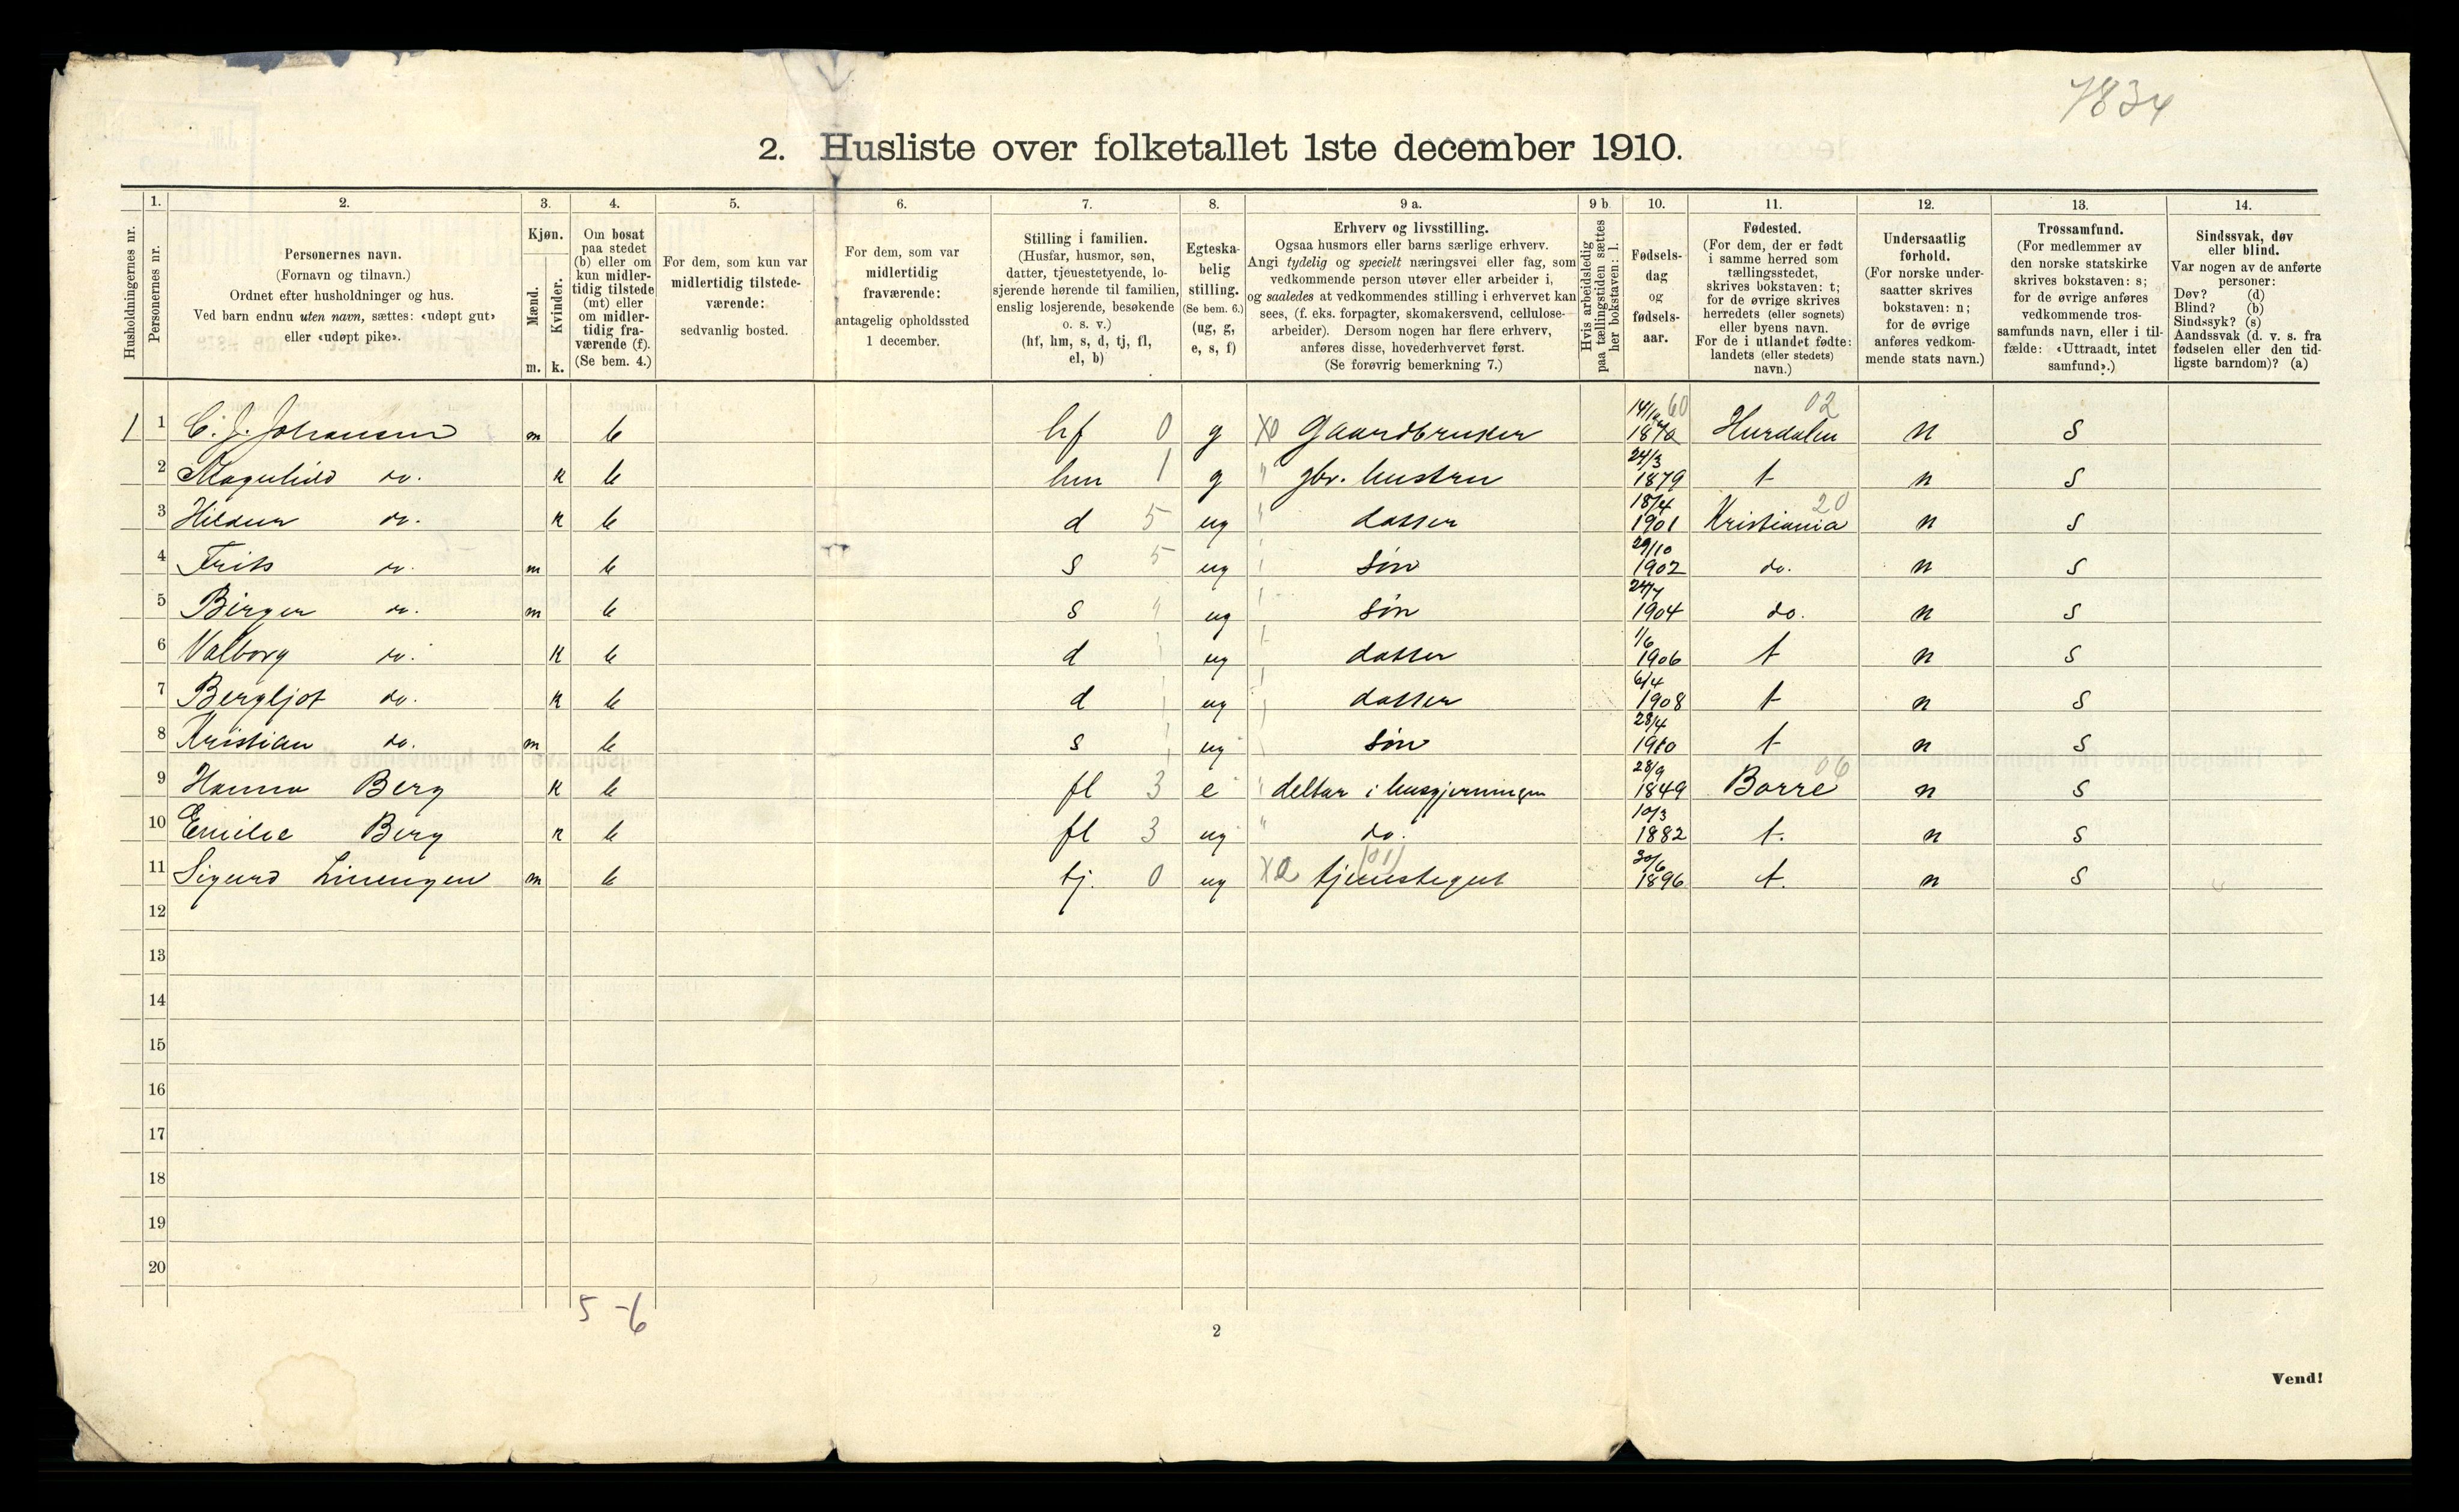 7834
2. Husliste over folketallet 1ste december 1910.
Husholdningernes nr.
1. Personernes nr.
2. Personernes navn. (Fornavn og tilnavn.) Ordnet efter husholdninger og hus. Ved barn endnu uten navn, sættes: «udøpt gut» eller «udøpt pike».
3. Kjøn. Mænd. m. Kvinder. k.
4. Om bosat paa stedet (b) eller om kun midlertidig tilstede (mt) eller om midlertidig fraværende (f). (Se bem. 4.)
5. For dem, som kun var midlertidig tilstedeværende: sedvanlig bosted.
6. For dem, som var midlertidig fraværende: antagelig opholdssted 1 december.
7. Stilling i familien. (Husfar, husmor, søn, datter, tjenestetyende, losjerende hørende til familien, enslig losjerende, besøkende o. s. v.) (hf, hm, s, d, tj, fl, el, b)
8. Egteskabelig stilling. (Se bem. 6.) (ug, g, e, s, f)
9 a. Erhverv og livsstilling. Ogsaa husmors eller barns særlige erhverv. Angi tydelig og specielt næringsvei eller fag, som vedkommende person utøver eller arbeider i, og saaledes at vedkommendes stilling i erhvervet kan sees, (f. eks. forpagter, skomakersvend, cellulosearbeider). Dersom nogen har flere erhverv, anføres disse, hovederhvervet først. (Se forøvrig bemerkning 7.)
9 b. Hvis arbeidsledig paa tællingstiden sættes her bokstaven: l.
10. Fødselsdag og fødselsaar.
11. Fødested. (For dem, der er født i samme herred som tællingsstedet, skrives bokstaven: t; for de øvrige skrives herredets (eller sognets) eller byens navn. For de i utlandet fødte: landets (eller stedets) navn.)
12. Undersaatlig forhold. (For norske undersaatter skrives bokstaven: n; for de øvrige anføres vedkommende stats navn.)
13. Trossamfund. (For medlemmer av den norske statskirke skrives bokstaven: s; for de øvrige anføres vedkommende trossamfunds navn, eller i tilfælde: «Uttraadt, intet samfund».)
14. Sindssvak, døv eller blind. Var nogen av de anførte personer: Døv? (d) Blind? (b) Sindssyk? (s) Aandssvak (d. v. s. fra fødselen eller den tidligste barndom)? (a)
1 1 C. J. Johansen m b hf 0 g X0 Gaardbruker 14/12 60 1870 Hurdalen 02 n s
2 Magnhild do. k b hm 1 g " gbr. hustru 24/3 1879 t n s
3 Hildur do. k b d 5 ug " datter 18/4 1901 Kristiania 20 n s
4 Frits do. m b s 5 ug søn 29/10 1902 do. n s
5 Birger do. m b s " ug søn 24/7 1904 do. n s
6 Valborg do. k b d ug datter 1/6 1906 t n s
7 Bergljot do. k b d ug datter 6/4 1908 t n s
8 Kristian do. m b s ug søn 28/4 1910 t n s
9 Hanna Berg k b fl 3 e " deltar i husgjerningen 28/9 1849 Borre 06 n s
10 Emilie Berg k b fl 3 ug " do. 10/3 1882 t. n s
11 Sigurd Linengen m b tj. 0 ug X2 tjenstegut (01) 30/6 1896 t. n s
12
13
14
15
16
17
18
19
20
5 - 6
2
Vend!